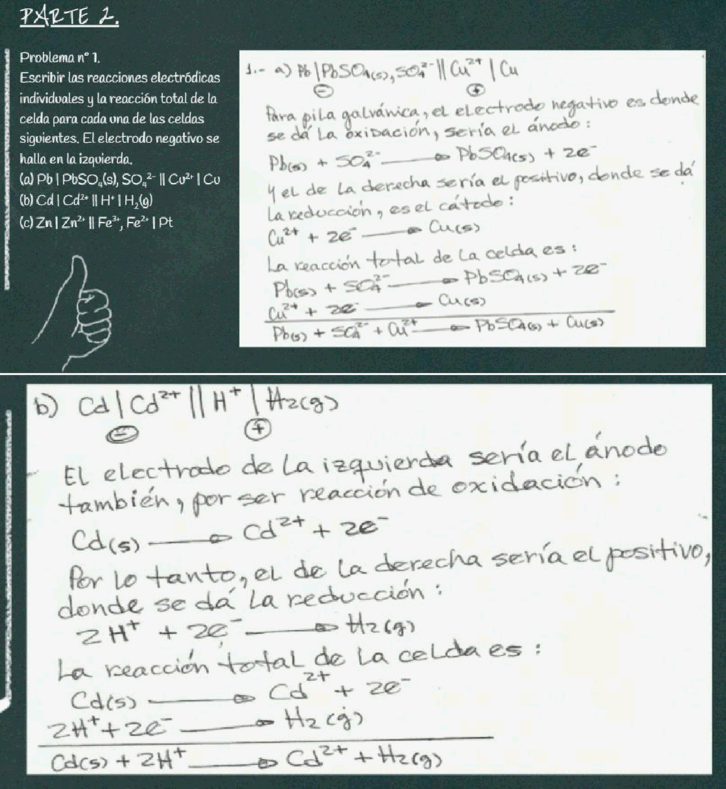 PARTE 2.
Problema n° 1.
Escribir las reacciones electródicas
individuales y la reacción total de la
celda para cada una de las celdas
siguientes. El electrodo negativo se
halla en la izquierda.
(a) Pb | PbSO₄(s), SO₄²⁻ || Cu²⁺ | Cu
(b) Cd | Cd²⁺ || H⁺ | H₂(g)
(c) Zn | Zn²⁺ || Fe³⁺, Fe²⁺ | Pt
1.- a) Pb | PbSO₄(s), SO₄²⁻ || Cu²⁺ | Cu
⊖ ⊕
Para pila galvánica, el electrodo negativo es donde
se dá la oxidación, sería el ánodo:
Pb(s) + SO₄²⁻ → PbSO₄(s) + 2e⁻
y el de la derecha sería el positivo, donde se dá
la reducción, es el cátodo:
Cu²⁺ + 2e⁻ → Cu(s)
La reacción total de la celda es:
Pb(s) + SO₄²⁻ → PbSO₄(s) + 2e⁻
Cu²⁺ + 2e⁻ → Cu(s)
Pb(s) + SO₄²⁻ + Cu²⁺ → PbSO₄(s) + Cu(s)
b) Cd | Cd²⁺ || H⁺ | H₂(g)
⊖ ⊕
El electrodo de la izquierda sería el ánodo
también, por ser reacción de oxidación:
Cd(s) → Cd²⁺ + 2e⁻
Por lo tanto, el de la derecha sería el positivo,
donde se dá la reducción:
2H⁺ + 2e⁻ → H₂(g)
La reacción total de la celda es:
Cd(s) → Cd²⁺ + 2e⁻
2H⁺ + 2e⁻ → H₂(g)
Cd(s) + 2H⁺ → Cd²⁺ + H₂(g)